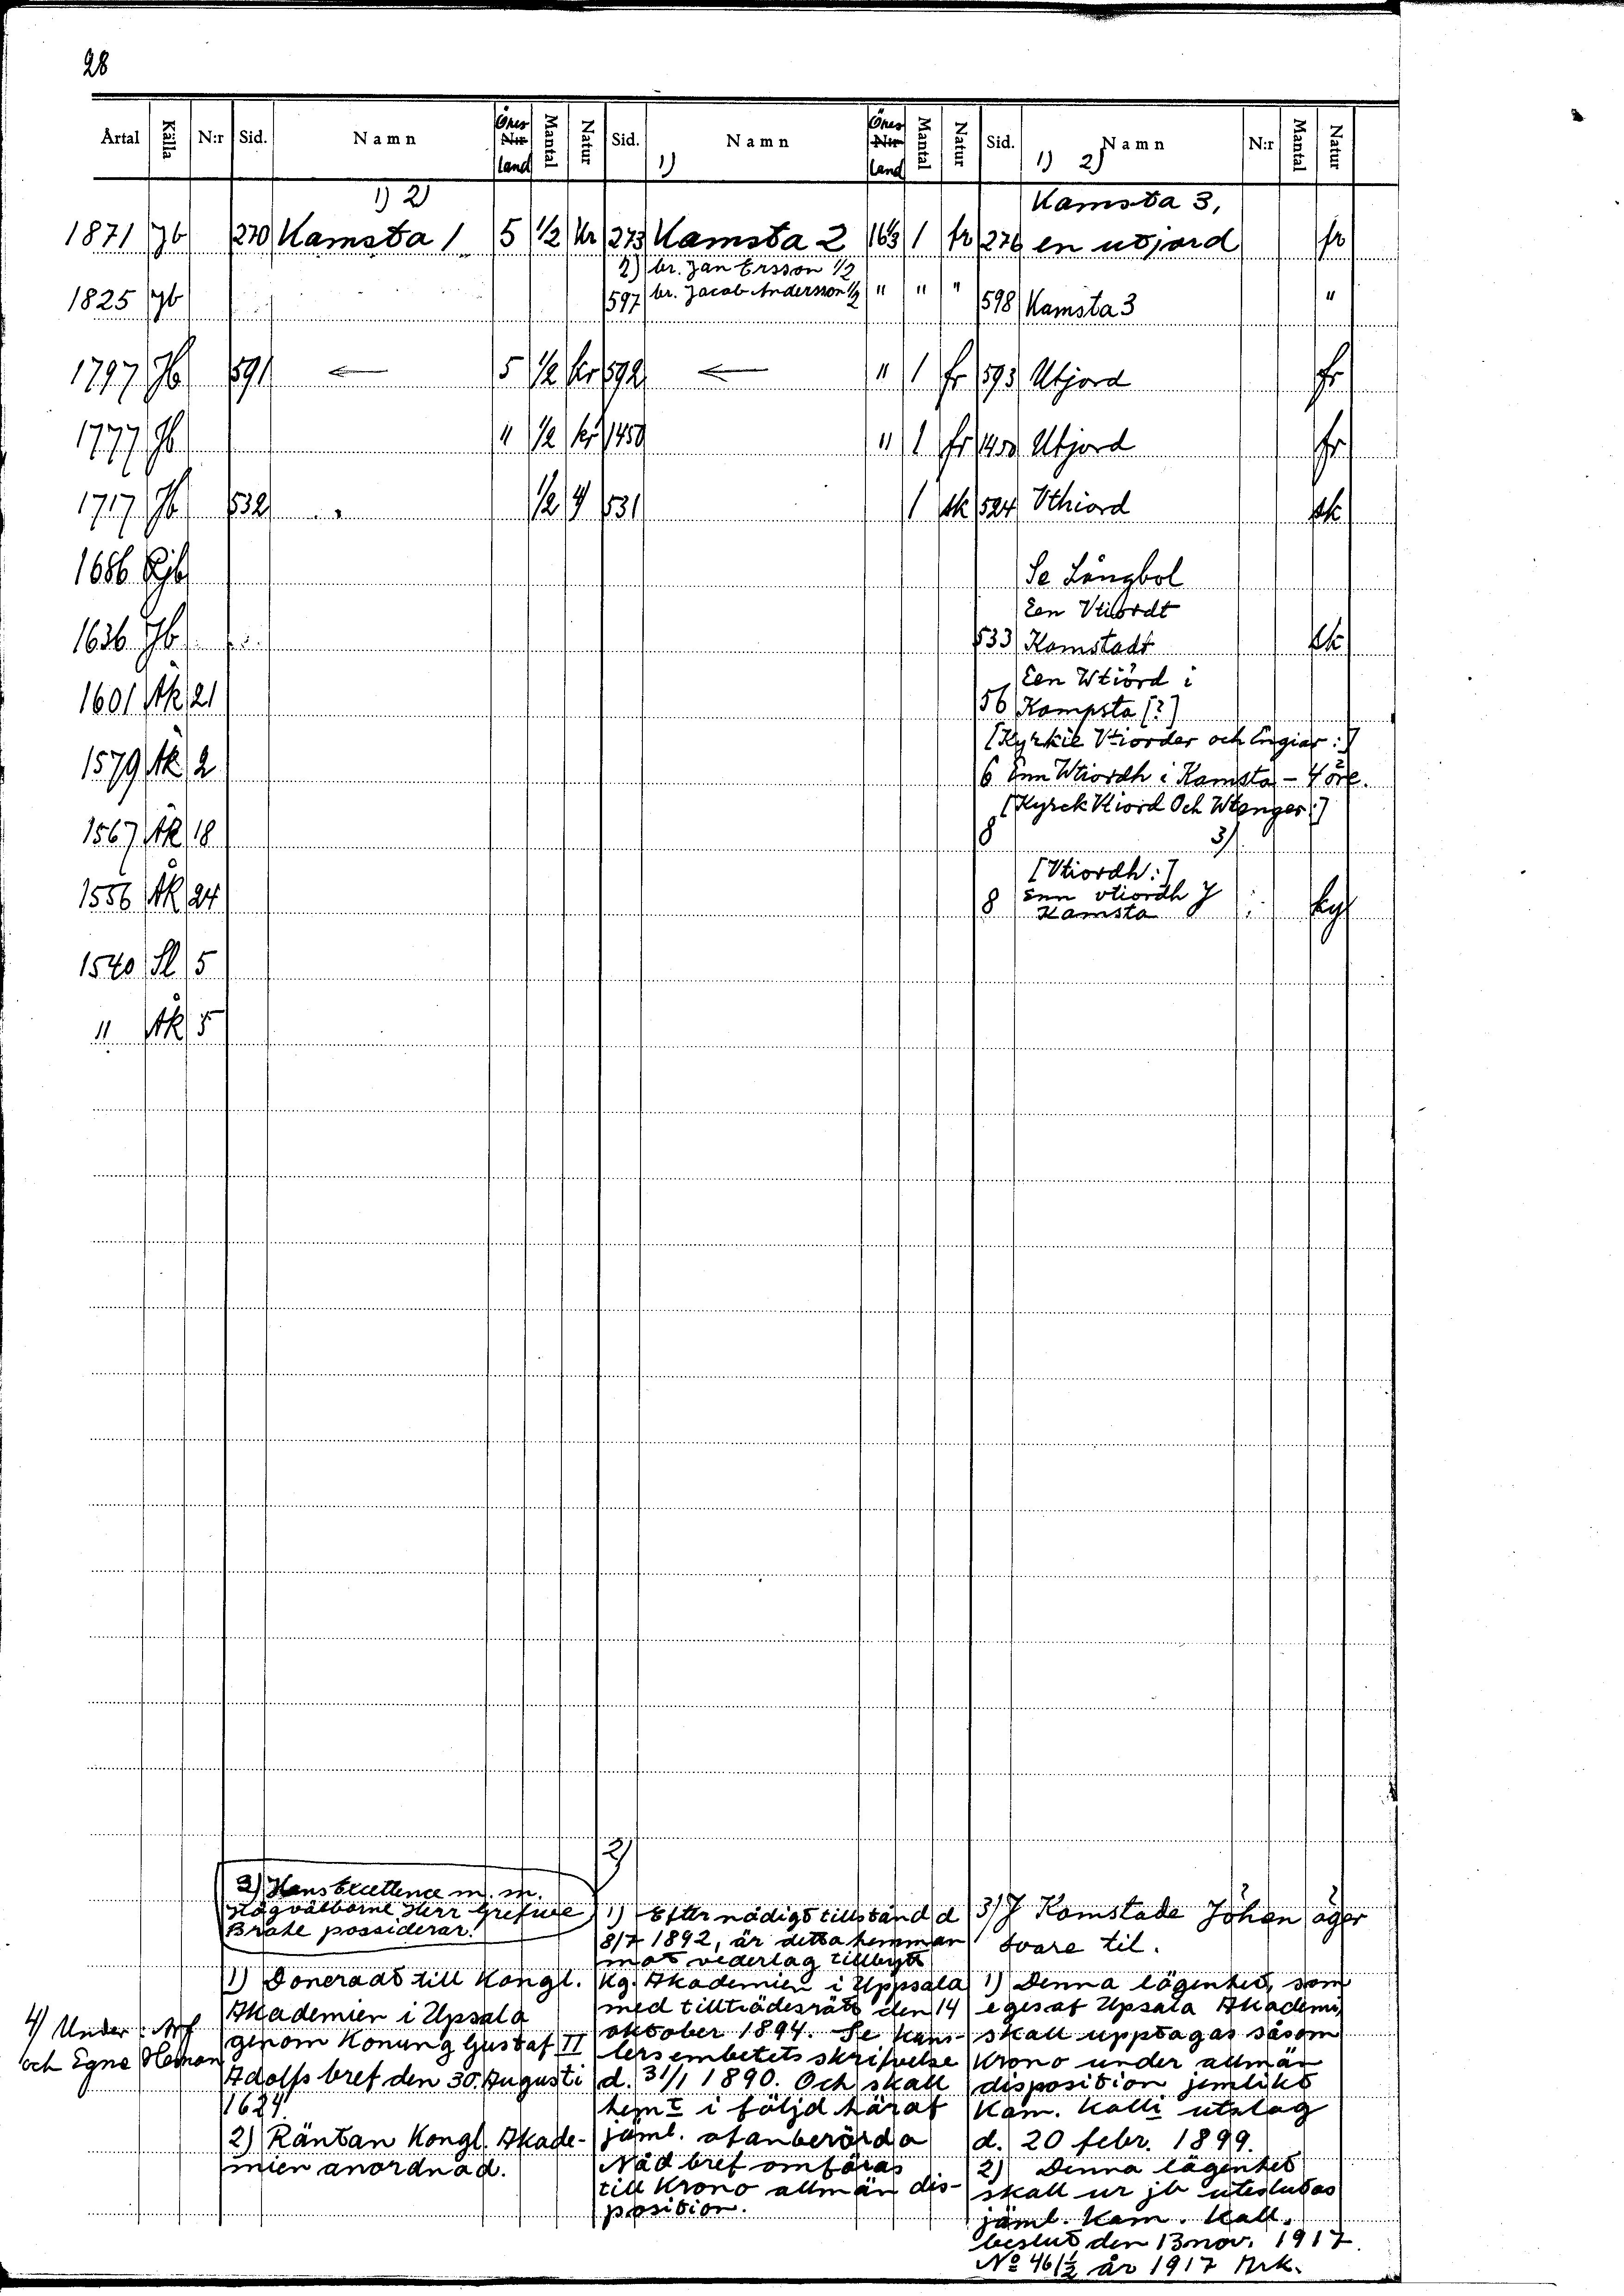 28
Årtal Källa N:r Sid. Namn Öres N:r land Mantal Natur Sid. 1) Namn Öres N:r land Mantal Natur Sid. 1) 2) Namn N:r Mantal Natur
1) 2) Kamsta 3,
1871 Jb 270 Kamsta 1 5 1/2 kr 273 Kamsta 2 16 1/3 1 fr 276 en utjord fr
2) br. Jan Ersson 1/2
1825 Jb 597 br. Jacob Andersson 1/2 " " " 598 Kamsta 3 "
1797 Jb 591 ← 5 1/2 kr 592 ← " 1 fr 593 Utjord fr
1777 Jb " 1/2 kr 1450 " 1 fr 1450 Utjord fr
1717 Jb 532 1/2 531 1 sk 524 Vthiord sk
1686 Rjb Se Långbol
Een Vtiordt
1636 Jb 533 Komstadt sk
Een Wtiörd i
1601 Åk 21 56 Kompsta [?]
[Kyrkie Vtiorder och Engiar :]
1579 Åk 2 6 Enn Wtiordh i Kamsta - 4 öre.
[Kyrck Vtiord Och Wtenger :]
1567 Åk 18 8 3)
[Vtiordh :]
1556 Åk 24 8 Enn vtiordh J
Kamsta ky
1540 Sl 5
" Åk 5
2)
3) Hans Excellence m. m.
Högvälborne Herr Grefwe
Brahe possiderar.
1) Donerad till Kongl.
Akademien i Upsala
genom Konung Gustaf II
Adolfs bref den 30. Augusti
1624.
2) Räntan Kongl. Akade-
mien anordnad.
4) Under : Arf
och Egne Heman
1) Efter nådigt tillstånd d
8/7 1892, är detta hemman
mot vederlag tillbytt
Kg. Akademien i Uppsala
med tillträdesrätt den 14
oktober 1894. Se Kans-
lersembetets skrifvelse
d. 31/1 1890. Och skall
hemt i följd häraf
jäml. ofanberörda
Nåd bref omföras
till Krono allmän dis-
position.
3) J Komstada Johan äger
svare til.
1) Denna lägenhet, som
eges af Upsala Akademi
skall upptagas såsom
Krono under allmän
disposition jemlikt
Kam. Kolli utslag
d. 20 febr. 1899.
2) Denna lägenhet
skall ur jb uteslutas
jäml. Kam. Koll.
beslut den 13 nov. 1917.
No 46 1/2 år 1917 Ark.